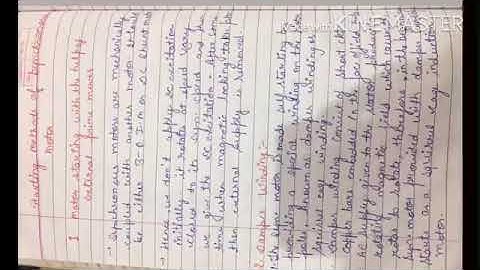 Starting methods of Synchronous
motor
1 Motor starting with the help of
external prime mover
→ Synchronous motors are mechanically
coupled with another motor it could
be either 3-Ø IM or DC shunt mo
→ Hence we don't apply DC excitation
initially it rotates in speed very
closed to its sync speed and the
we give the DC excitation & after some
time when magnetic locking takes pla
then external supply is removed
2. Damper Winding:-
1. The sync motor is made self starting by
providing a special winding on the rotor
poles, known as damper winding or
squirrel cage winding
damper winding consist of short ckt
copper bars embedded in the face of field
AC supply given to the stator produces
rotating magnetic field which causes
rotor to rotate, therefore in the
sync motor provided with damper winding
starts as a squirrel cage induction
motor.
KINEMASTER